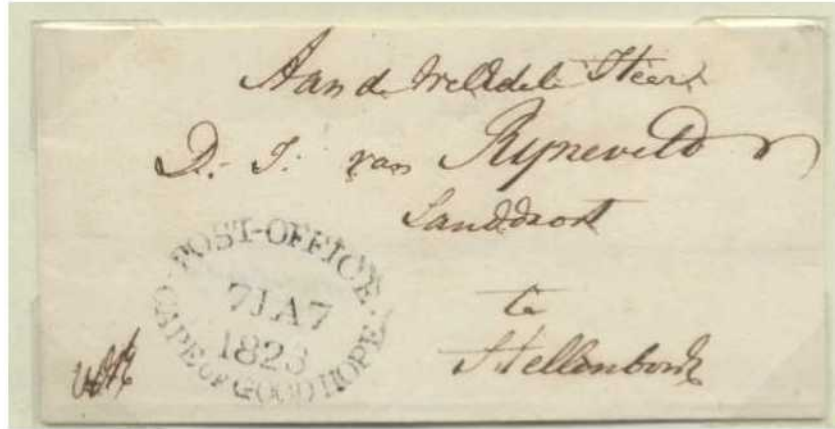 Aan de WelEdele Heer
D. J. van Ryneveld
Landdrost
te
Stellenbosch
POST-OFFICE
7 JA 7
1823
CAPE OF GOOD HOPE